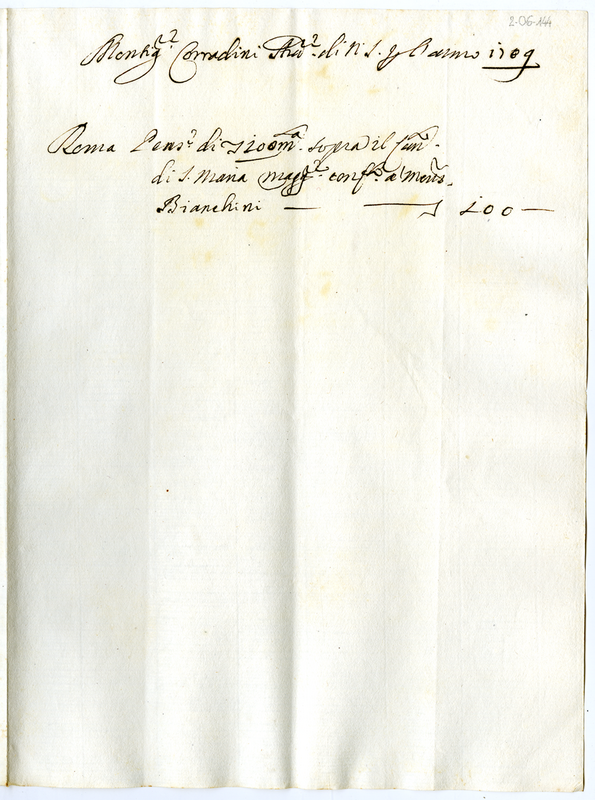 2-06-144
Monsig.r Corradini Aud.re di N. S. p l'anno 1709
Roma Pens.e di 200 m.a sopra il
di S. Maria magg.re conf. a Mons.
Bianchini — — 200 —